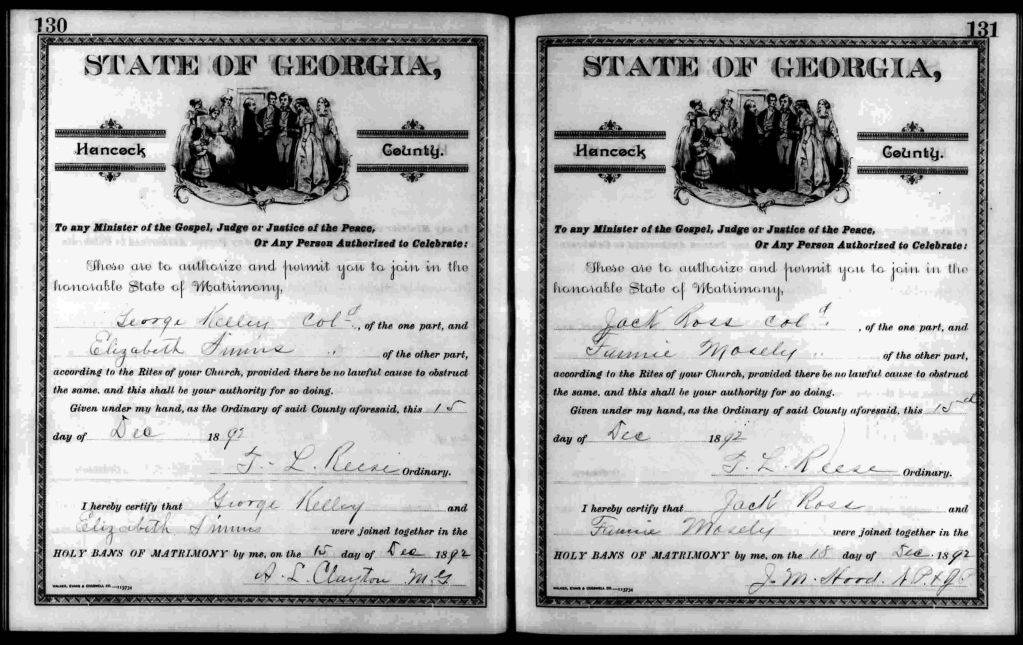 130
STATE OF GEORGIA,
Hancock County.
To any Minister of the Gospel, Judge or Justice of the Peace,
Or Any Person Authorized to Celebrate:
These are to authorize and permit you to join in the
honorable State of Matrimony,
George Kelley Col^d., of the one part, and
Elizabeth Simms " of the other part,
according to the Rites of your Church, provided there be no lawful cause to obstruct
the same, and this shall be your authority for so doing.
Given under my hand, as the Ordinary of said County aforesaid, this 15
day of Dec 1892
T. L. Reese Ordinary.
I hereby certify that George Kelley and
Elizabeth Simms were joined together in the
HOLY BANS OF MATRIMONY by me, on the 15 day of Dec 1892
A. L. Clayton M.G.
WALKER, EVANS & COGSWELL CO.—113734
131
STATE OF GEORGIA,
Hancock County.
To any Minister of the Gospel, Judge or Justice of the Peace,
Or Any Person Authorized to Celebrate:
These are to authorize and permit you to join in the
honorable State of Matrimony,
Jack Ross Col^d., of the one part, and
Fannie Mosely " of the other part,
according to the Rites of your Church, provided there be no lawful cause to obstruct
the same, and this shall be your authority for so doing.
Given under my hand, as the Ordinary of said County aforesaid, this 15th
day of Dec 1892
T. L. Reese Ordinary.
I hereby certify that Jack Ross and
Fannie Mosely were joined together in the
HOLY BANS OF MATRIMONY by me, on the 18 day of Dec. 1892
J. M. Hood. N.P. & J.P.
WALKER, EVANS & COGSWELL CO.—113734